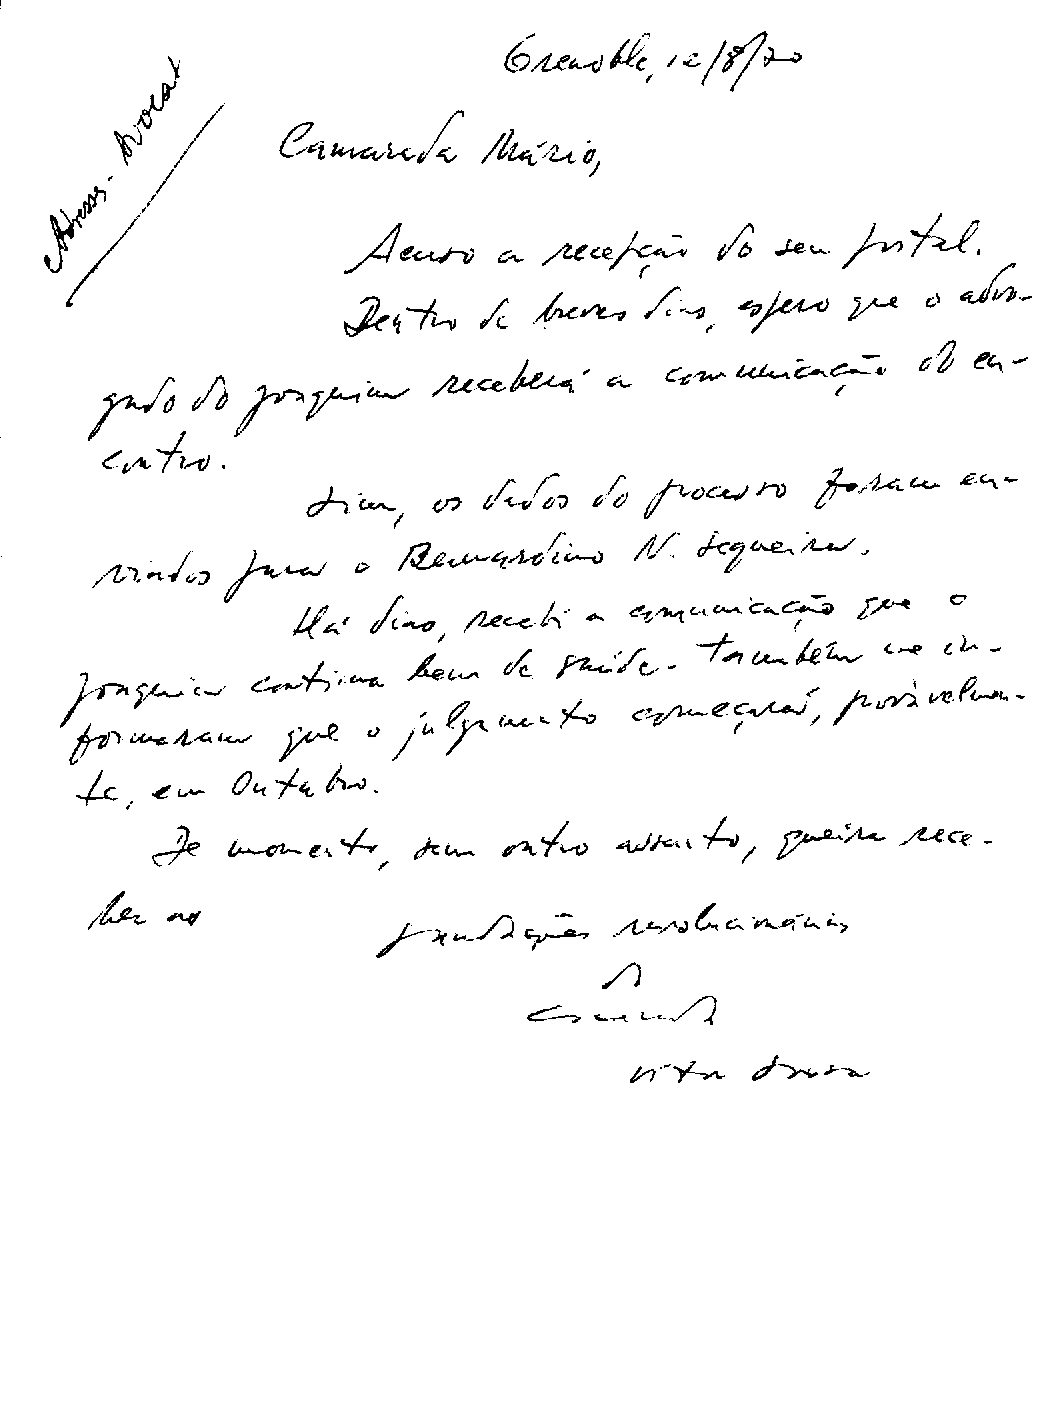 Grenoble, 12/8/70
Adresse - Avocat
Camarada Mário,
Acuso a recepção do seu postal.
Dentro de breves dias, espero que o advo-
gado do Joaquim receberá a comunicação do en-
contro.
Sim, os dados do processo foram en-
viados para o Bernardino N. Sequeira.
Há dias, recebi a comunicação que o
Joaquim continua bem de saúde. Também me in-
formaram que o julgamento começará, provàvelmen-
te, em Outubro.
De momento, sem outro assunto, queira rece-
ber as
saudações revolucionárias
do
Camarada